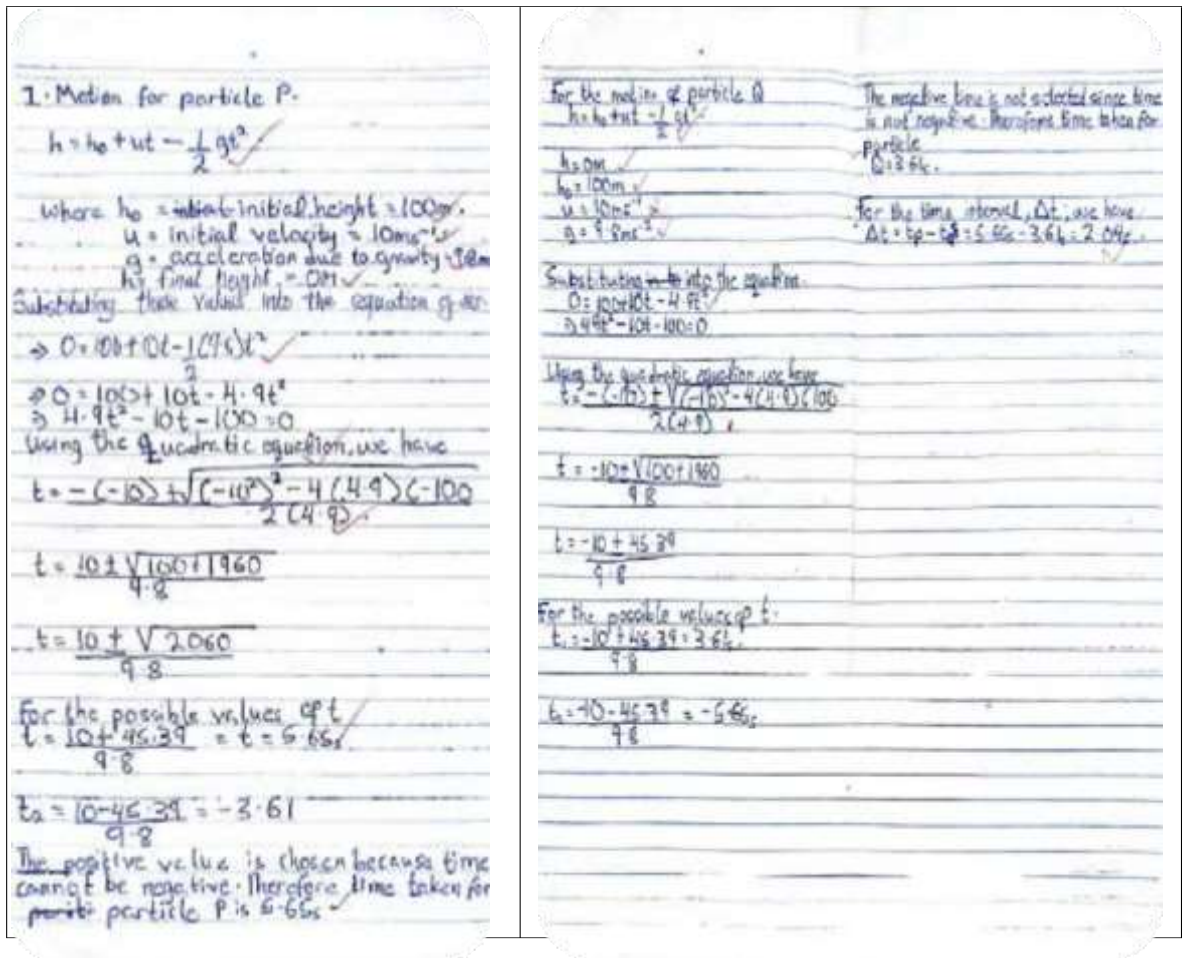 1. Motion for particle P.
h = h₀ + ut - 1/2 gt²
where h₀ = initial height = 100m.
u = initial velocity = 10ms⁻¹
g = acceleration due to gravity =
h = final height = 0m
Substituting these values into the equation
⇒ 0 = 100 + 10t - 1/2 (9.8)t²
⇒ 0 = 100 + 10t - 4.9t²
⇒ 4.9t² - 10t - 100 = 0
Using the quadratic equation, we have
t = -(-10) ± √((-10²)² - 4(4.9)(-100 / 2(4.9)
t = 10 ± √(100 + 1960) / 9.8
t = 10 ± √2060 / 9.8
For the possible values of t
t = 10 + 45.39 / 9.8 = t = 5.65s
t₂ = 10 - 45.39 / 9.8 = -3.61
The positive value is chosen because time
cannot be negative. Therefore time taken for
particle P is 5.65s
For the motion of particle Q
h = h₀ + ut - 1/2 gt²
h = 0m
h₀ = 100m
u = 10ms⁻¹
g = 9.8ms⁻²
Substituting into the equation.
0 = 100 + 10t - 4.9t²
⇒ 4.9t² - 10t - 100 = 0
Using the quadratic equation, we have
t = -(-10) ± √((-10)² - 4(4.9)(100 / 2(4.9)
t = -10 ± √(100 + 1960) / 9.8
t = -10 ± 45.39 / 9.8
For the possible values of t.
t₁ = -10 + 45.39 / 9.8 = 3.61s.
t₂ = -10 - 45.39 / 9.8 = -5.65s
The negative time is not selected since time
is not negative. Therefore time taken for
particle
Q = 3.61s.
For the time interval, Δt, we have
Δt = = 5.65 - 3.61 = 2.04s